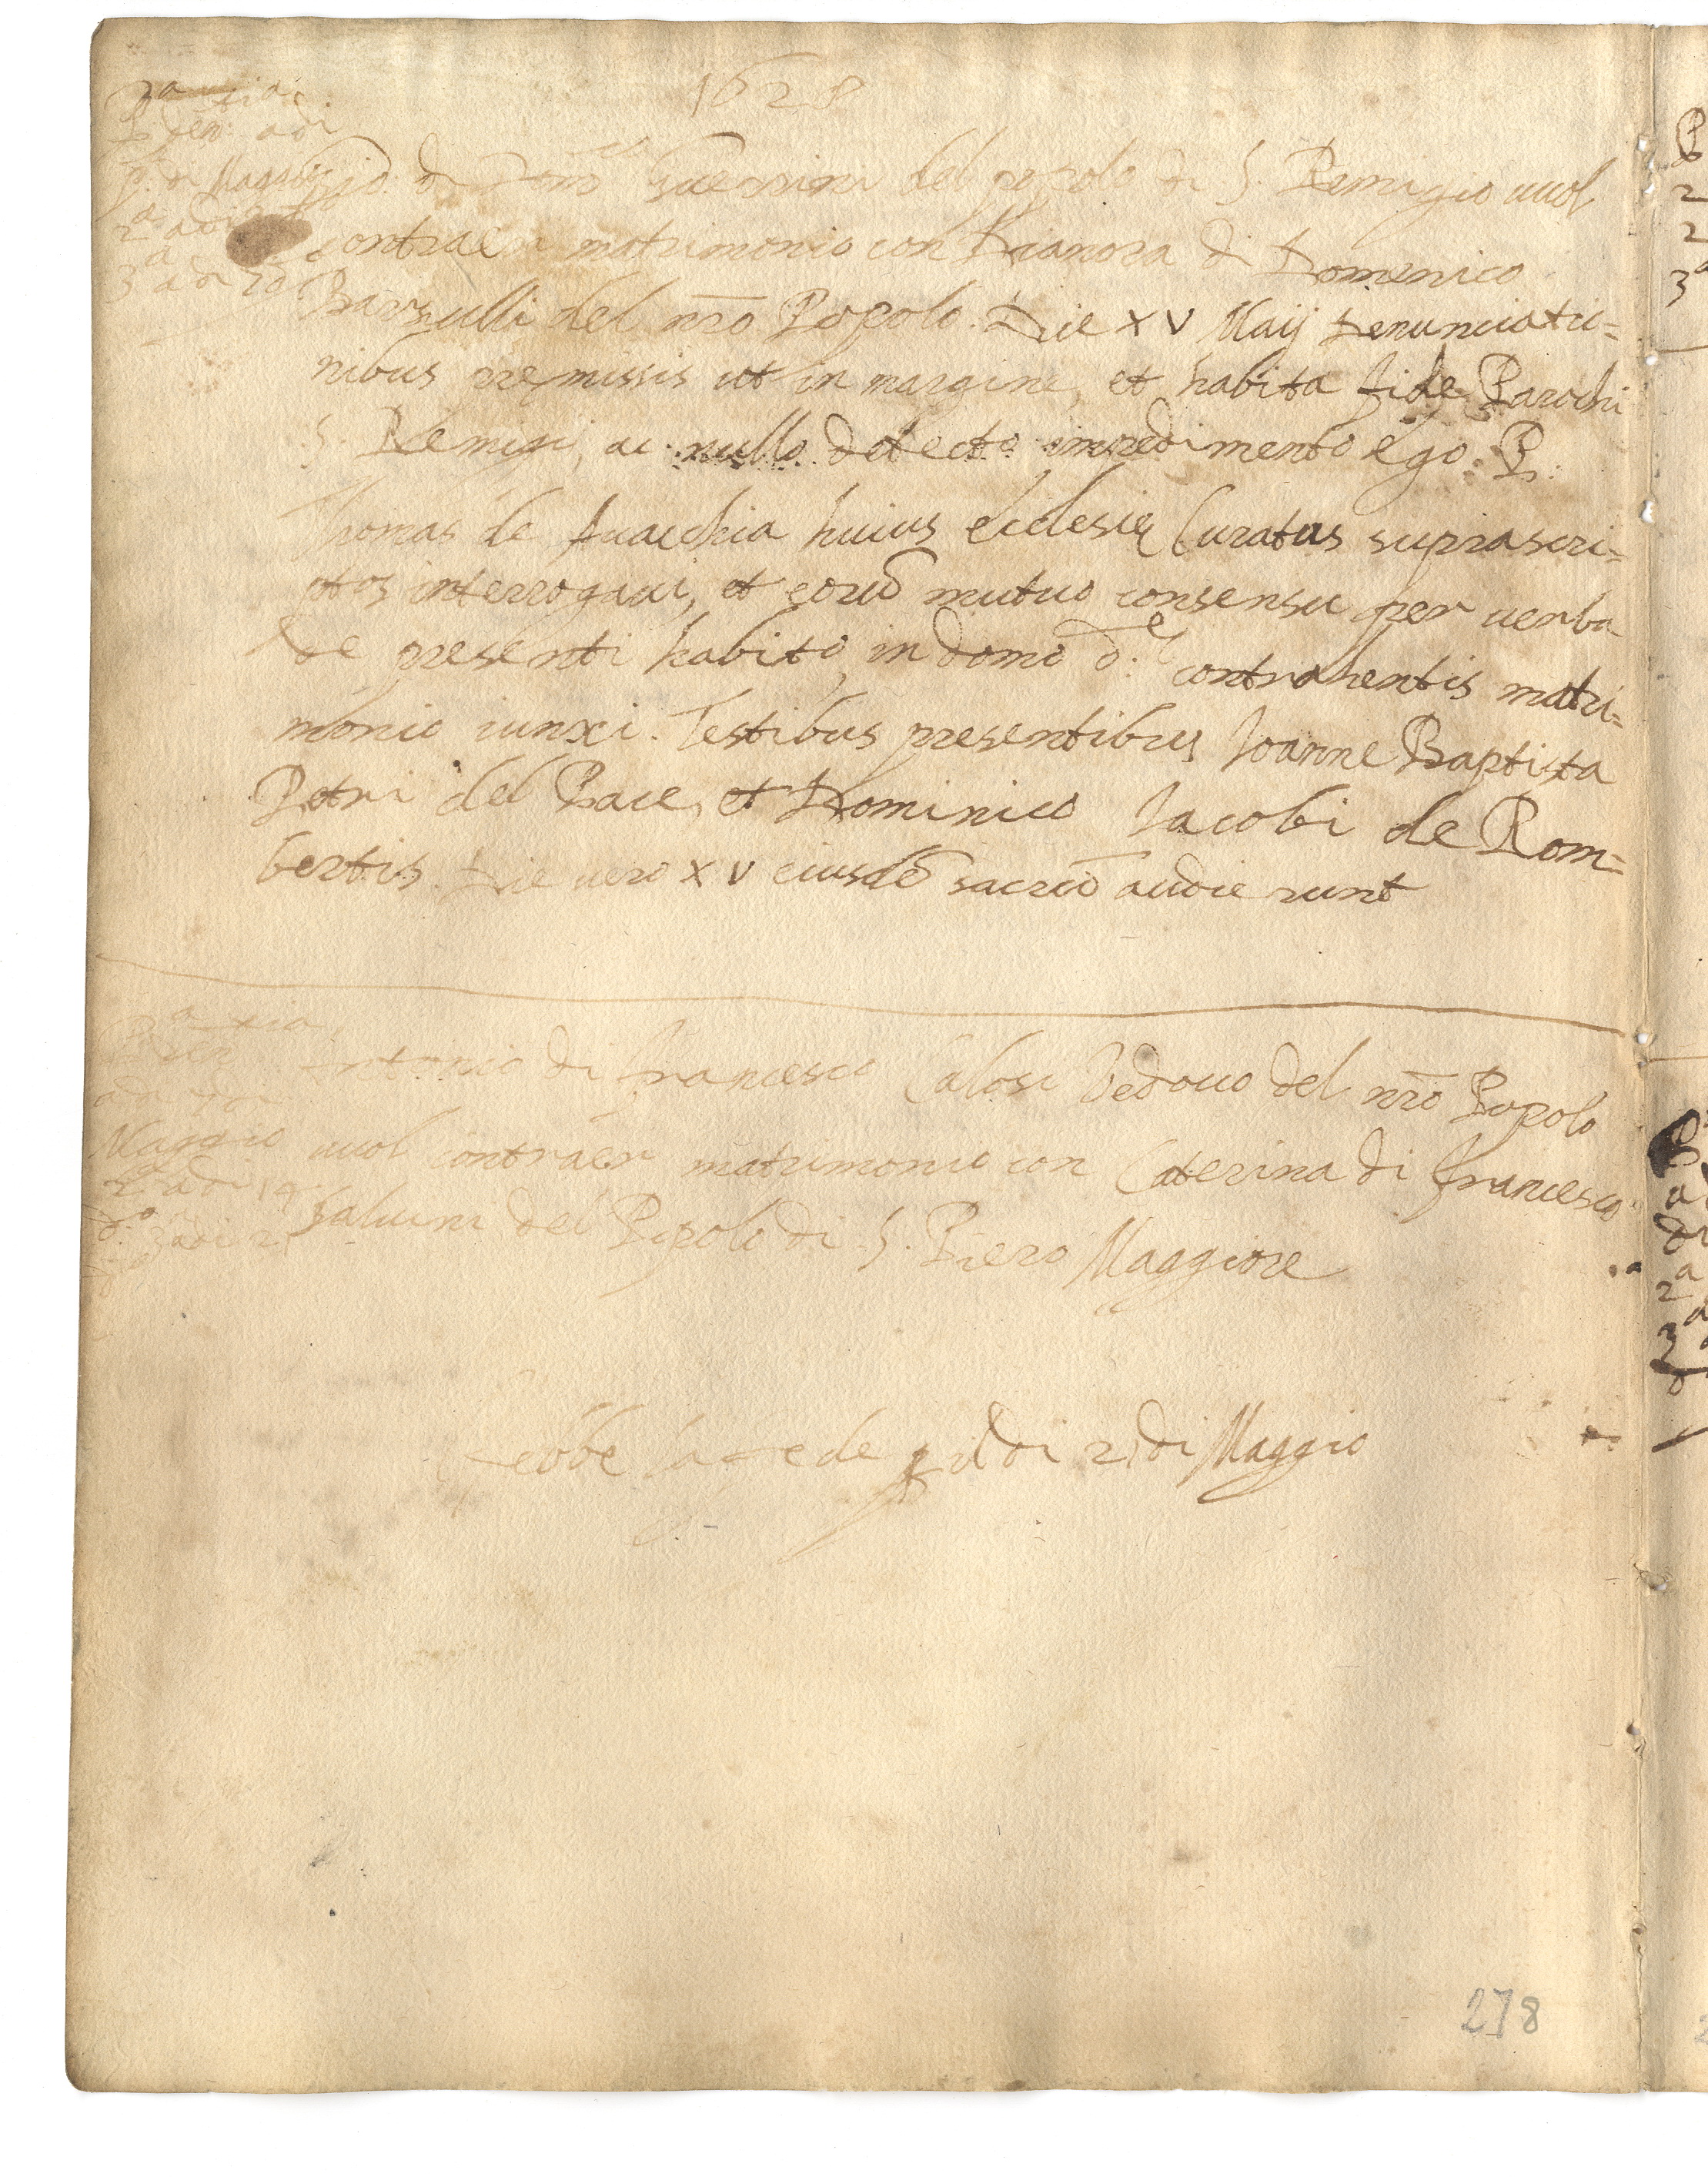 1628
P.ª den. adi
p.º di Maggio
2ª adi
3ª adi 10
di Guerrini del popolo di S. Remigio uuol
contraer matrimonio con Dianora di Domenico
del nr̃o Popolo. Die XV Maij Denunciatio=
nibus premissis ut in margine, et habita fide Parochi
S. Remigi, ac nullo detecto impedimento ego P.
Thomas de huius Ecclesię Curatus suprascri=
ptos interrogaui, et eorũ mutuo consensu per uerba
de presenti habito, in domo d.ᵉ contrahentis matri=
monio iunxi. Testibus presentibus Joanne Baptista
Petri del Pace, et Dominico Jacobi de Rom=
bertis. Die uero XV eiusdẽ sacrũ audierunt
Pª
Den
adi
Maggio
2ª adi 14
dº 3ª adi 21
Antonio di Francesco Calosi Vedouo del nr̃o Popolo
uuol contraer matrimonio con Caterina di Francesco
Saluini del Popolo di S. Piero Maggiore
hebbe la fede il di 21 di Maggio
278